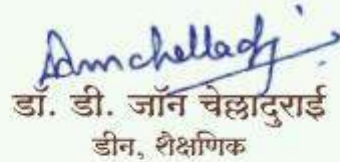 डॉ. डी. जॉन चेल्लादुराई
डीन, शैक्षणिक